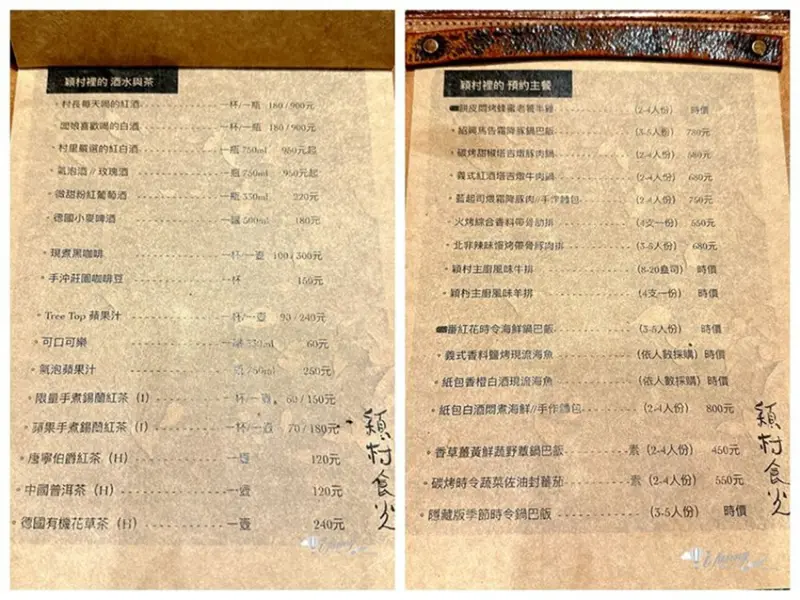 穎村裡的 酒水與茶
村長每天喝的紅酒 一杯/一瓶 180/900元
闆娘喜歡喝的白酒 一杯/一瓶 180/900元
村里嚴選的紅白酒 一瓶 750ml 950元起
氣泡酒//玫瑰酒 一瓶 750ml 950元起
微甜粉紅葡萄酒 一瓶 350ml 220元
德國小麥啤酒 一罐 500ml 180元
現煮黑咖啡 一杯/一壺 100/300元
手沖莊園咖啡豆 一杯 150元
Tree Top 蘋果汁 一杯/一壺 90/240元
可口可樂 一罐 330ml 60元
氣泡蘋果汁 一瓶 750ml 250元
限量手煮錫蘭紅茶 (I) 一杯/一壺 60/150元
蘋果手煮錫蘭紅茶 (I) 一杯/一壺 70/180元
唐寧伯爵紅茶 (H) 一壺 120元
中國普洱茶 (H) 一壺 120元
德國有機花草茶 (H) 一壺 240元
穎村食光
穎村裡的 預約主餐
皮悶烤蜂蜜老饕半雞 (2-4人份) 時價
紹興馬告霜降豚鍋巴飯 (3-5人份) 780元
碳烤甜椒塔吉燉豚肉鍋 (2-4人份) 580元
義式紅酒塔吉燉牛肉鍋 (2-4人份) 680元
藍起司煨霜降豚肉//手作麵包 (2-4人份) 750元
火烤綜合香料帶骨肋排 (4支一份) 550元
北非辣味慢烤帶骨豚肉排 (3-5人份) 680元
穎村主廚風味牛排 (8-20盎司) 時價
穎村主廚風味羊排 (4支一份) 時價
番紅花時令海鮮鍋巴飯 (3-5人份) 時價
義式香料鹽烤現流海魚 (依人數採購) 時價
紙包香橙白酒現流海魚 (依人數採購) 時價
紙包白酒悶煮海鮮//手作麵包 (2-4人份) 800元
香草薑黃鮮蔬野蕈鍋巴飯 素 (2-4人份) 450元
碳烤時令蔬菜佐油封蕃茄 素 (2-4人份) 550元
隱藏版季節時令鍋巴飯 (3-5人份) 時價
穎村食光